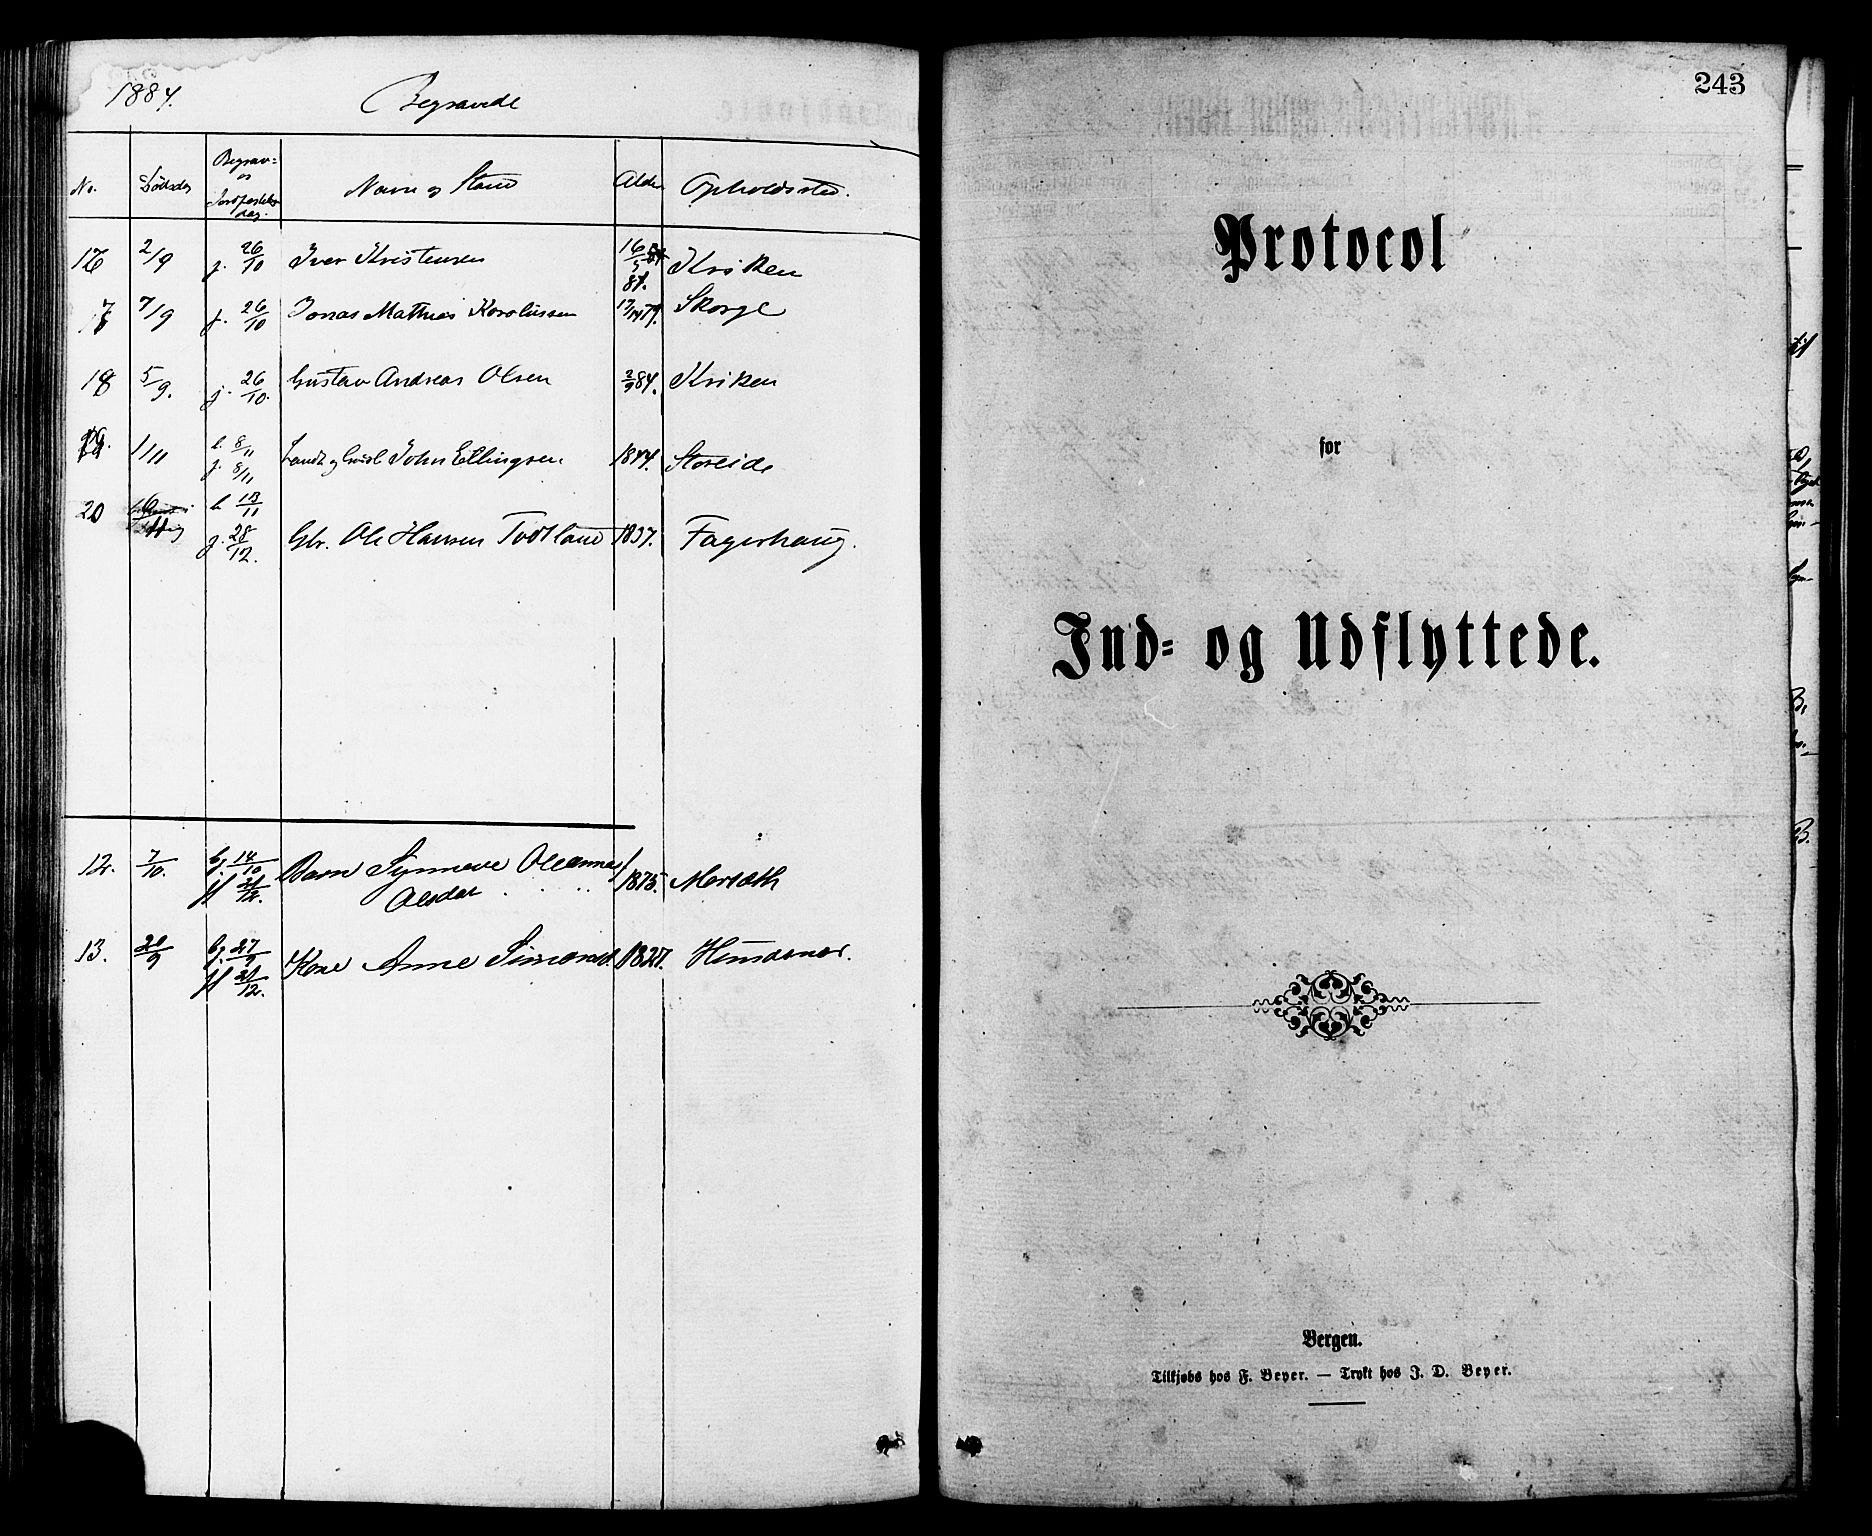 1884. Begravede
No. Dødsdag Begrav= og Jordfæstelses dag. Navn og Stand Alder Opholdssted.
16 2/9 j. 26/10 Iver Kristensen 16/5 84. Kriken
17 7/9 j. 26/10 Jonas Mathias Karolussen Skorge
18 5/9. j. 26/10. Gustav Andreas Olsen 2/9 84. Kriken
19. 1/11 b. 8/11 j. 8/11 John Ellingsen 1844. Storeide
20 b 13/11
j. 28/12. Gbr. Ole Hansen Tvedtland 1837. Fagerhaug.
12. 7/10. bg. 14/10 Barn Synneve Oleanna
jf 21/12. Olsdat 1875.
13. bg. 27/9 Kone Anne 1827.
jf 21/12.
243
Protocol
for
Ind= og Udflyttede.
Bergen.
Tilkjøbs hos F. Beyer. — Trykt hos J. D. Beyer.